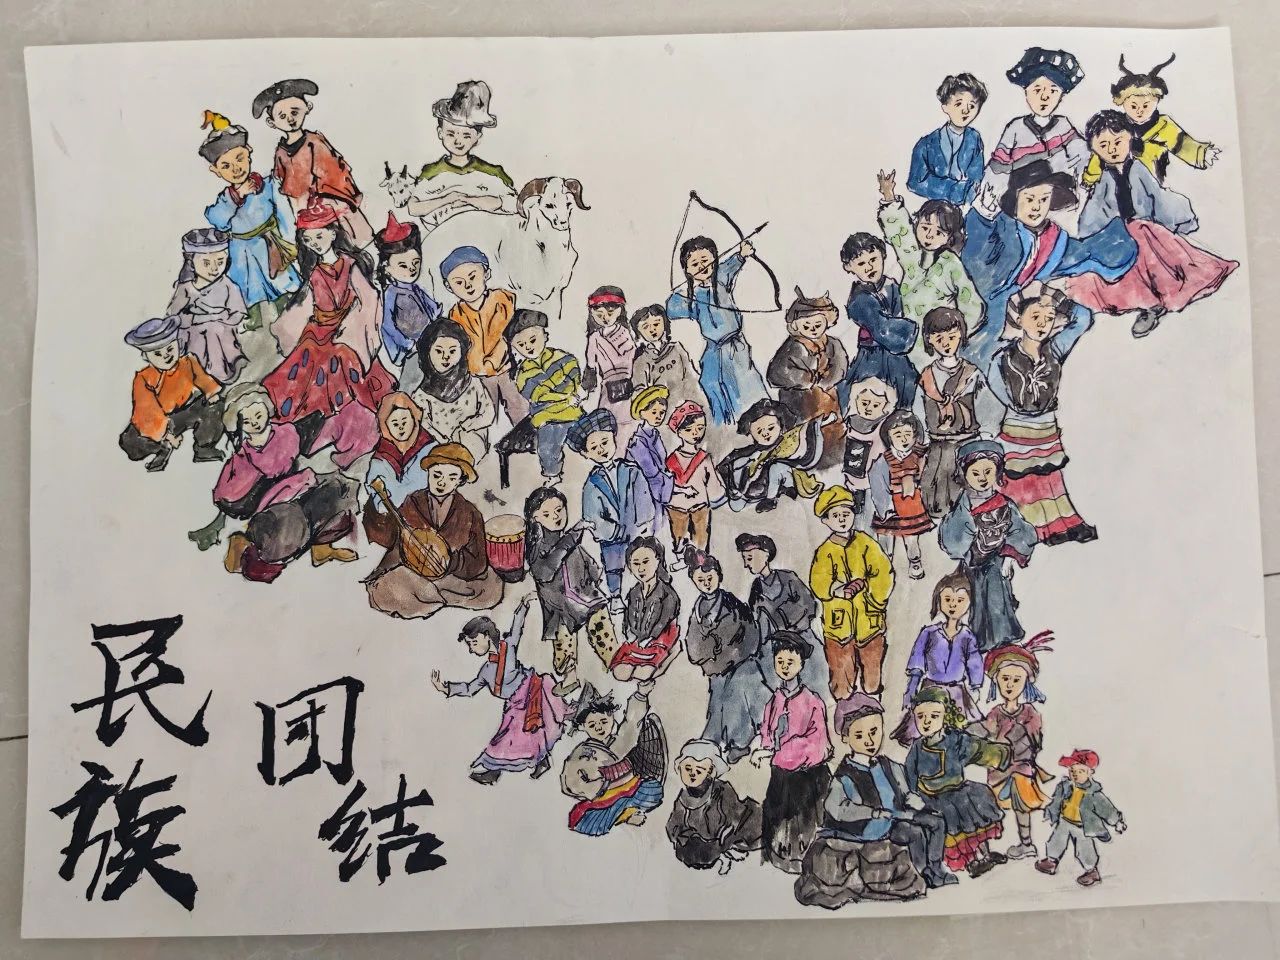 民族
团结